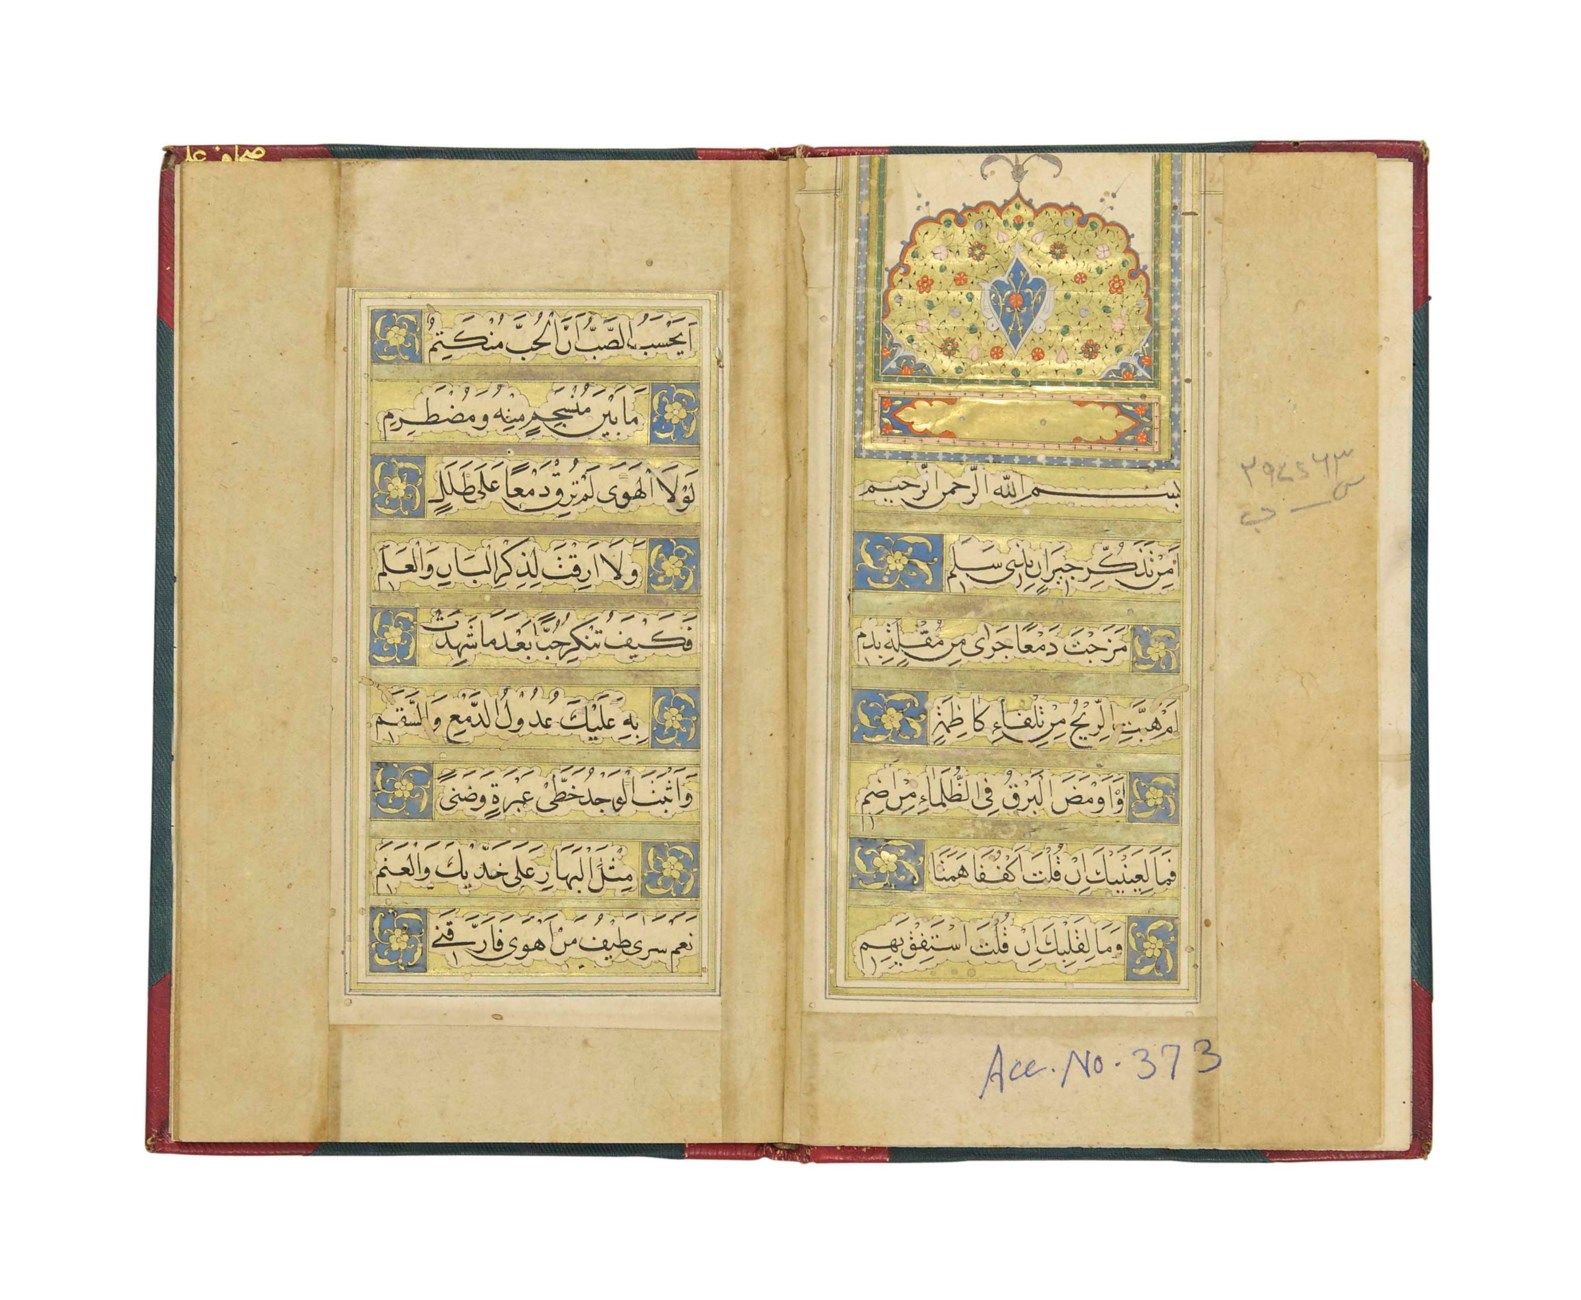 بسم الله الرحمن الرحيم
اَمِنْ تَذَكُّرِ جِيرَانٍ بِذِي سَلَمِ
مَزَجْتَ دَمْعًا جَرَى مِنْ مُقْلَةٍ بِدَمِ
اَمْ هَبَّتِ الرِّيحُ مِنْ تِلْقَاءِ كَاظِمَةٍ
وَاَوْمَضَ الْبَرْقُ فِي الظَّلْمَاءِ مِنْ اِضَمِ
فَمَا لِعَيْنَيْكَ اِنْ قُلْتَ اكْفُفَا هَمَتَا
وَمَا لِقَلْبِكَ اِنْ قُلْتَ اسْتَفِقْ يَهِمِ
Acc. No. 373
اَيَحْسَبُ الصَّبُّ اَنَّ الْحُبَّ مُنْكَتِمٌ
مَا بَيْنَ مُنْسَجِمٍ مِنْهُ وَمُضْطَرِمِ
لَوْلَا الْهَوَى لَمْ تُرِقْ دَمْعًا عَلَى طَلَلٍ
وَلَا اَرِقْتَ لِذِكْرِ الْبَانِ وَالْعَلَمِ
فَكَيْفَ تُنْكِرُ حُبًّا بَعْدَمَا شَهِدَتْ
بِهِ عَلَيْكَ عُدُولُ الدَّمْعِ وَالسَّقَمِ
وَاَثْبَتَ الْوَجْدُ خَطَّىْ عَبْرَةٍ وَضَنًى
مِثْلَ الْبَهَارِ عَلَى خَدَّيْكَ وَالْعَنَمِ
نَعَمْ سَرَى طَيْفُ مَنْ اَهْوَى فَاَرَّقَنِي